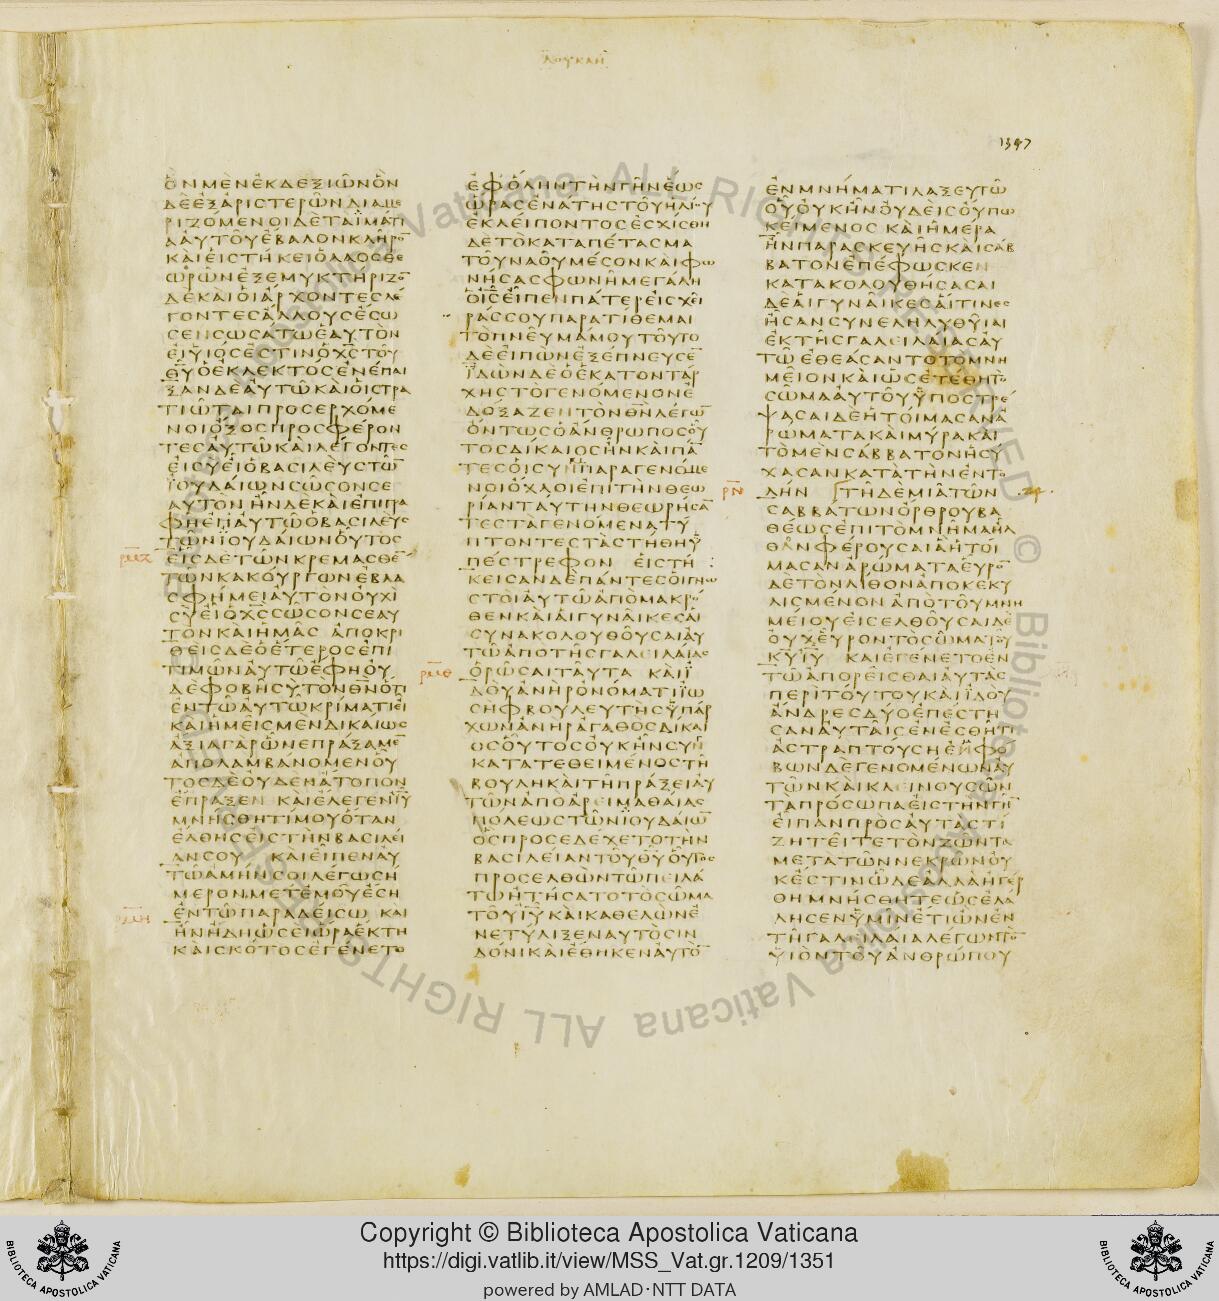 ΛΟΥΚΑΝ
1347
ὋΝΜῈΝἘΚΔΕΞΙΩ͂ΝὋΝ
ΔῈἘΞἈΡΙΣΤΕΡΩ͂ΝΔΙΑΜΕ
ΡΙΖΌΜΕΝΟΙΔῈΤΑἹΜΆΤΙ
ΑΑΥΤΟΥΕΒΑΛΟΝΚΛΗΡΟ̅
ΚΑΙΕΙΣΤΗΚΕΙΟΛΑΟΣΘΕ
ΩΡΩΝΕΞΕΜΥΚΤΗΡΙΖΟ̅
ΔΕΚΑΙΟΙΑΡΧΟΝΤΕΣΛΕ
ΓΟΝΤΕΣΑΛΛΟΥΣΕΣΩ
ΣΕΝΣΩΣΑΤΩΕΑΥΤΟΝ
ΕΙΥΙΟΣΕΣΤΙΝΟΧ̅Σ̅ΤΟΥ
Θ̅Υ̅ΟΕΚΛΕΚΤΟΣΕΝΕΠΑΙ
ΞΑΝΔΕΑΥΤΩΚΑΙΟΙΣΤΡΑ
ΤΙΩΤΑΙΠΡΟΣΕΡΧΟΜΕ
ΝΟΙΟΞΟΣΠΡΟΣΦΕΡΟΝ
ΤΕΣΑΥΤΩΚΑΙΛΕΓΟΝΤΕΣ
ΕΙΣΥΕΙΟΒΑΣΙΛΕΥΣΤΩ̅
ΙΟΥΔΑΙΩΝΣΩΣΟΝΣΕ
ΑΥΤΟΝΗΝΔΕΚΑΙΕΠΙΓΡΑ
ΦΗΕΠΑΥΤΩΟΒΑΣΙΛΕΥΣ
ΤΩΝΙΟΥΔΑΙΩΝΟΥΤΟΣ
ΕΙΣΔΕΤΩΝΚΡΕΜΑΣΘΕ̅
ΤΩΝΚΑΚΟΥΡΓΩΝΕΒΛΑ
ΣΦΗΜΕΙΑΥΤΟΝΟΥΧΙ
ΣΥΕΙΟΧ̅Σ̅ΣΩΣΟΝΣΕΑΥ
ΤΟΝΚΑΙΗΜΑΣ ΑΠΟΚΡΙ
ΘΕΙΣΔΕΟΕΤΕΡΟΣΕΠΙ
ΤΙΜΩΝΑΥΤΩΕΦΗΟΥ
ΔΕΦΟΒΗΣΥΤΟΝΘ̅Ν̅ΟΤΙ
ΕΝΤΩΑΥΤΩΚΡΙΜΑΤΙΕΙ
ΚΑΙΗΜΕΙΣΜΕΝΔΙΚΑΙΩΣ
ΑΞΙΑΓΑΡΩΝΕΠΡΑΞΑΜΕ̅
ΑΠΟΛΑΜΒΑΝΟΜΕΝΟΥ
ΤΟΣΔΕΟΥΔΕΝΑΤΟΠΟΝ
ΕΠΡΑΞΕΝ ΚΑΙΕΛΕΓΕΝΙ̅Υ̅
ΜΝΗΣΘΗΤΙΜΟΥΟΤΑΝ
ΕΛΘΗΣΕΙΣΤΗΝΒΑΣΙΛΕΙ
ΑΝΣΟΥ ΚΑΙΕΙΠΕΝΑΥ
ΤΩΑΜΗΝΣΟΙΛΕΓΩΣΗ
ΜΕΡΟΝΜΕΤΕΜΟΥΕΣΗ
ΕΝΤΩΠΑΡΑΔΕΙΣΩ ΚΑΙ
ΗΝΗΔΗΩΣΕΙΩΡΑΕΚΤΗ
ΚΑΙΣΚΟΤΟΣΕΓΕΝΕΤΟ
ΕΦΟΛΗΝΤΗΝΓΗΝΕΩΣ
ΩΡΑΣΕΝΑΤΗΣΤΟΥΗΛΙΟΥ
ΕΚΛΕΙΠΟΝΤΟΣΕΣΧΙΣΘΗ
ΔΕΤΟΚΑΤΑΠΕΤΑΣΜΑ
ΤΟΥΝΑΟΥΜΕΣΟΝΚΑΙΦΩ
ΝΗΣΑΣΦΩΝΗΜΕΓΑΛΗ
ΟΙ̅Σ̅ΕΙΠΕΝΠΑΤΕΡΕΙΣΧΕΙ
ΡΑΣΣΟΥΠΑΡΑΤΙΘΕΜΑΙ
ΤΟΠΝΕΥΜΑΜΟΥΤΟΥΤΟ
ΔΕΕΙΠΩΝΕΞΕΠΝΕΥΣΕ̅
ΙΔΩΝΔΕΟΕΚΑΤΟΝΤΑΡ
ΧΗΣΤΟΓΕΝΟΜΕΝΟΝΕ
ΔΟΞΑΖΕΝΤΟΝΘ̅Ν̅ΛΕΓΩ̅
ΟΝΤΩΣΟΑΝΘΡΩΠΟΣΟΥ
ΤΟΣΔΙΚΑΙΟΣΗΝΚΑΙΠΑ̅
ΤΕΣΟΙΣΥΝΠΑΡΑΓΕΝΟΜΕ
ΝΟΙΟΧΛΟΙΕΠΙΤΗΝΘΕΩ
ΡΙΑΝΤΑΥΤΗΝΘΕΩΡΗΣΑ̅
ΤΕΣΤΑΓΕΝΟΜΕΝΑΤΥ
ΠΤΟΝΤΕΣΤΑΣΤΗΘΗΥ
ΠΕΣΤΡΕΦΟΝ ΕΙΣΤΗ
ΚΕΙΣΑΝΔΕΠΑΝΤΕΣΟΙΓΝΩ
ΣΤΟΙΑΥΤΩΑΠΟΜΑΚΡΟ
ΘΕΝΚΑΙΑΙΓΥΝΑΙΚΕΣΑΙ
ΣΥΝΑΚΟΛΟΥΘΟΥΣΑΙΑΥ
ΤΩΑΠΟΤΗΣΓΑΛΕΙΛΑΙΑΣ
ΟΡΩΣΑΙΤΑΥΤΑ ΚΑΙΙ
ΔΟΥΑΝΗΡΟΝΟΜΑΤΙΙΩ
ΣΗΦΒΟΥΛΕΥΤΗΣΥΠΑΡ
ΧΩΝΑΝΗΡΑΓΑΘΟΣΔΙΚΑΙ
ΟΣΟΥΤΟΣΟΥΚΗΝΣΥΝ
ΚΑΤΑΤΕΘΕΙΜΕΝΟΣΤΗ
ΒΟΥΛΗΚΑΙΤΗΠΡΑΞΕΙΑΥ
ΤΩΝΑΠΟΑΡΕΙΜΑΘΑΙΑΣ
ΠΟΛΕΩΣΤΩΝΙΟΥΔΑΙΩ̅
ΟΣΠΡΟΣΕΔΕΧΕΤΟΤΗΝ
ΒΑΣΙΛΕΙΑΝΤΟΥΘ̅Υ̅ΟΥΤΟΣ
ΠΡΟΣΕΛΘΩΝΤΩΠΕΙΛΑ
ΤΩΗΤΗΣΑΤΟΤΟΣΩΜΑ
ΤΟΥΙ̅Υ̅ΚΑΙΚΑΘΕΛΩΝΕ
ΝΕΤΥΛΙΞΕΝΑΥΤΟΣΙΝ
ΔΟΝΙΚΑΙΕΘΗΚΕΝΑΥΤΟ̅
ΕΝΜΝΗΜΑΤΙΛΑΞΕΥΤΩ
ΟΥΟΥΚΗΝΟΥΔΕΙΣΟΥΠΩ
ΚΕΙΜΕΝΟΣ ΚΑΙΗΜΕΡΑ
ΗΝΠΑΡΑΣΚΕΥΗΣΚΑΙΣΑΒ
ΒΑΤΟΝΕΠΕΦΩΣΚΕΝ
ΚΑΤΑΚΟΛΟΥΘΗΣΑΣΑΙ
ΔΕΑΙΓΥΝΑΙΚΕΣΑΙΤΙΝΕΣ
ΗΣΑΝΣΥΝΕΛΗΛΥΘΥΙΑΙ
ΕΚΤΗΣΓΑΛΕΙΛΑΙΑΣΑΥ
ΤΩΕΘΕΑΣΑΝΤΟΤΟΜΝΗ
ΜΕΙΟΝΚΑΙΩΣΕΤΕΘΗΤΟ
ΣΩΜΑΑΥΤΟΥΥΠΟΣΤΡΕ
ΨΑΣΑΙΔΕΗΤΟΙΜΑΣΑΝΑ
ΡΩΜΑΤΑΚΑΙΜΥΡΑΚΑΙ
ΤΟΜΕΝΣΑΒΒΑΤΟΝΗΣΥ
ΧΑΣΑΝΚΑΤΑΤΗΝΕΝΤΟ
ΛΗΝ ΤΗΔΕΜΙΑΤΩΝ
ΣΑΒΒΑΤΩΝΟΡΘΡΟΥΒΑ
ΘΕΩΣΕΠΙΤΟΜΝΗΜΑΗΛ
ΘΑΝΦΕΡΟΥΣΑΙΑΗΤΟΙ
ΜΑΣΑΝΑΡΩΜΑΤΑΕΥΡΟ̅
ΔΕΤΟΝΛΙΘΟΝΑΠΟΚΕΚΥ
ΛΙΣΜΕΝΟΝΑΠΟΤΟΥΜΝΗ
ΜΕΙΟΥΕΙΣΕΛΘΟΥΣΑΙΔΕ
ΟΥΧΕΥΡΟΝΤΟΣΩΜΑΤΟΥ
Κ̅Υ̅Ι̅Υ̅ ΚΑΙΕΓΕΝΕΤΟΕΝ
ΤΩΑΠΟΡΕΙΣΘΑΙΑΥΤΑΣ
ΠΕΡΙΤΟΥΤΟΥΚΑΙΙΔΟΥ
ΑΝΔΡΕΣΔΥΟΕΠΕΣΤΗ
ΣΑΝΑΥΤΑΙΣΕΝΕΣΘΗΤΙ
ΑΣΤΡΑΠΤΟΥΣΗΕΜΦΟ
ΒΩΝΔΕΓΕΝΟΜΕΝΩΝΑΥ
ΤΩΝΚΑΙΚΛΕΙΝΟΥΣΩΝ
ΤΑΠΡΟΣΩΠΑΕΙΣΤΗΝΓΗ̅
ΕΙΠΑΝΠΡΟΣΑΥΤΑΣΤΙ
ΖΗΤΕΙΤΕΤΟΝΖΩΝΤΑ
ΜΕΤΑΤΩΝΝΕΚΡΩΝΟΥ
ΚΕΣΤΙΝΩΔΕΑΛΛΑΗΓΕΡ
ΘΗΜΝΗΣΘΗΤΕΩΣΕΛΑ
ΛΗΣΕΝΥΜΙΝΕΤΙΩΝΕΝ
ΤΗΓΑΛΕΙΛΑΙΑΛΕΓΩΝΤΟ̅
ΥΙΟΝΤΟΥΑΝΘΡΩΠΟΥ
Biblioteca Apostolica Vaticana ALL RIGHTS RESERVED ©
Copyright © Biblioteca Apostolica Vaticana
https://digi.vatlib.it/view/MSS_Vat.gr.1209/1351
powered by AMLAD·NTT DATA
BIBLIOTECA APOSTOLICA VATICANA
BIBLIOTECA APOSTOLICA VATICANA